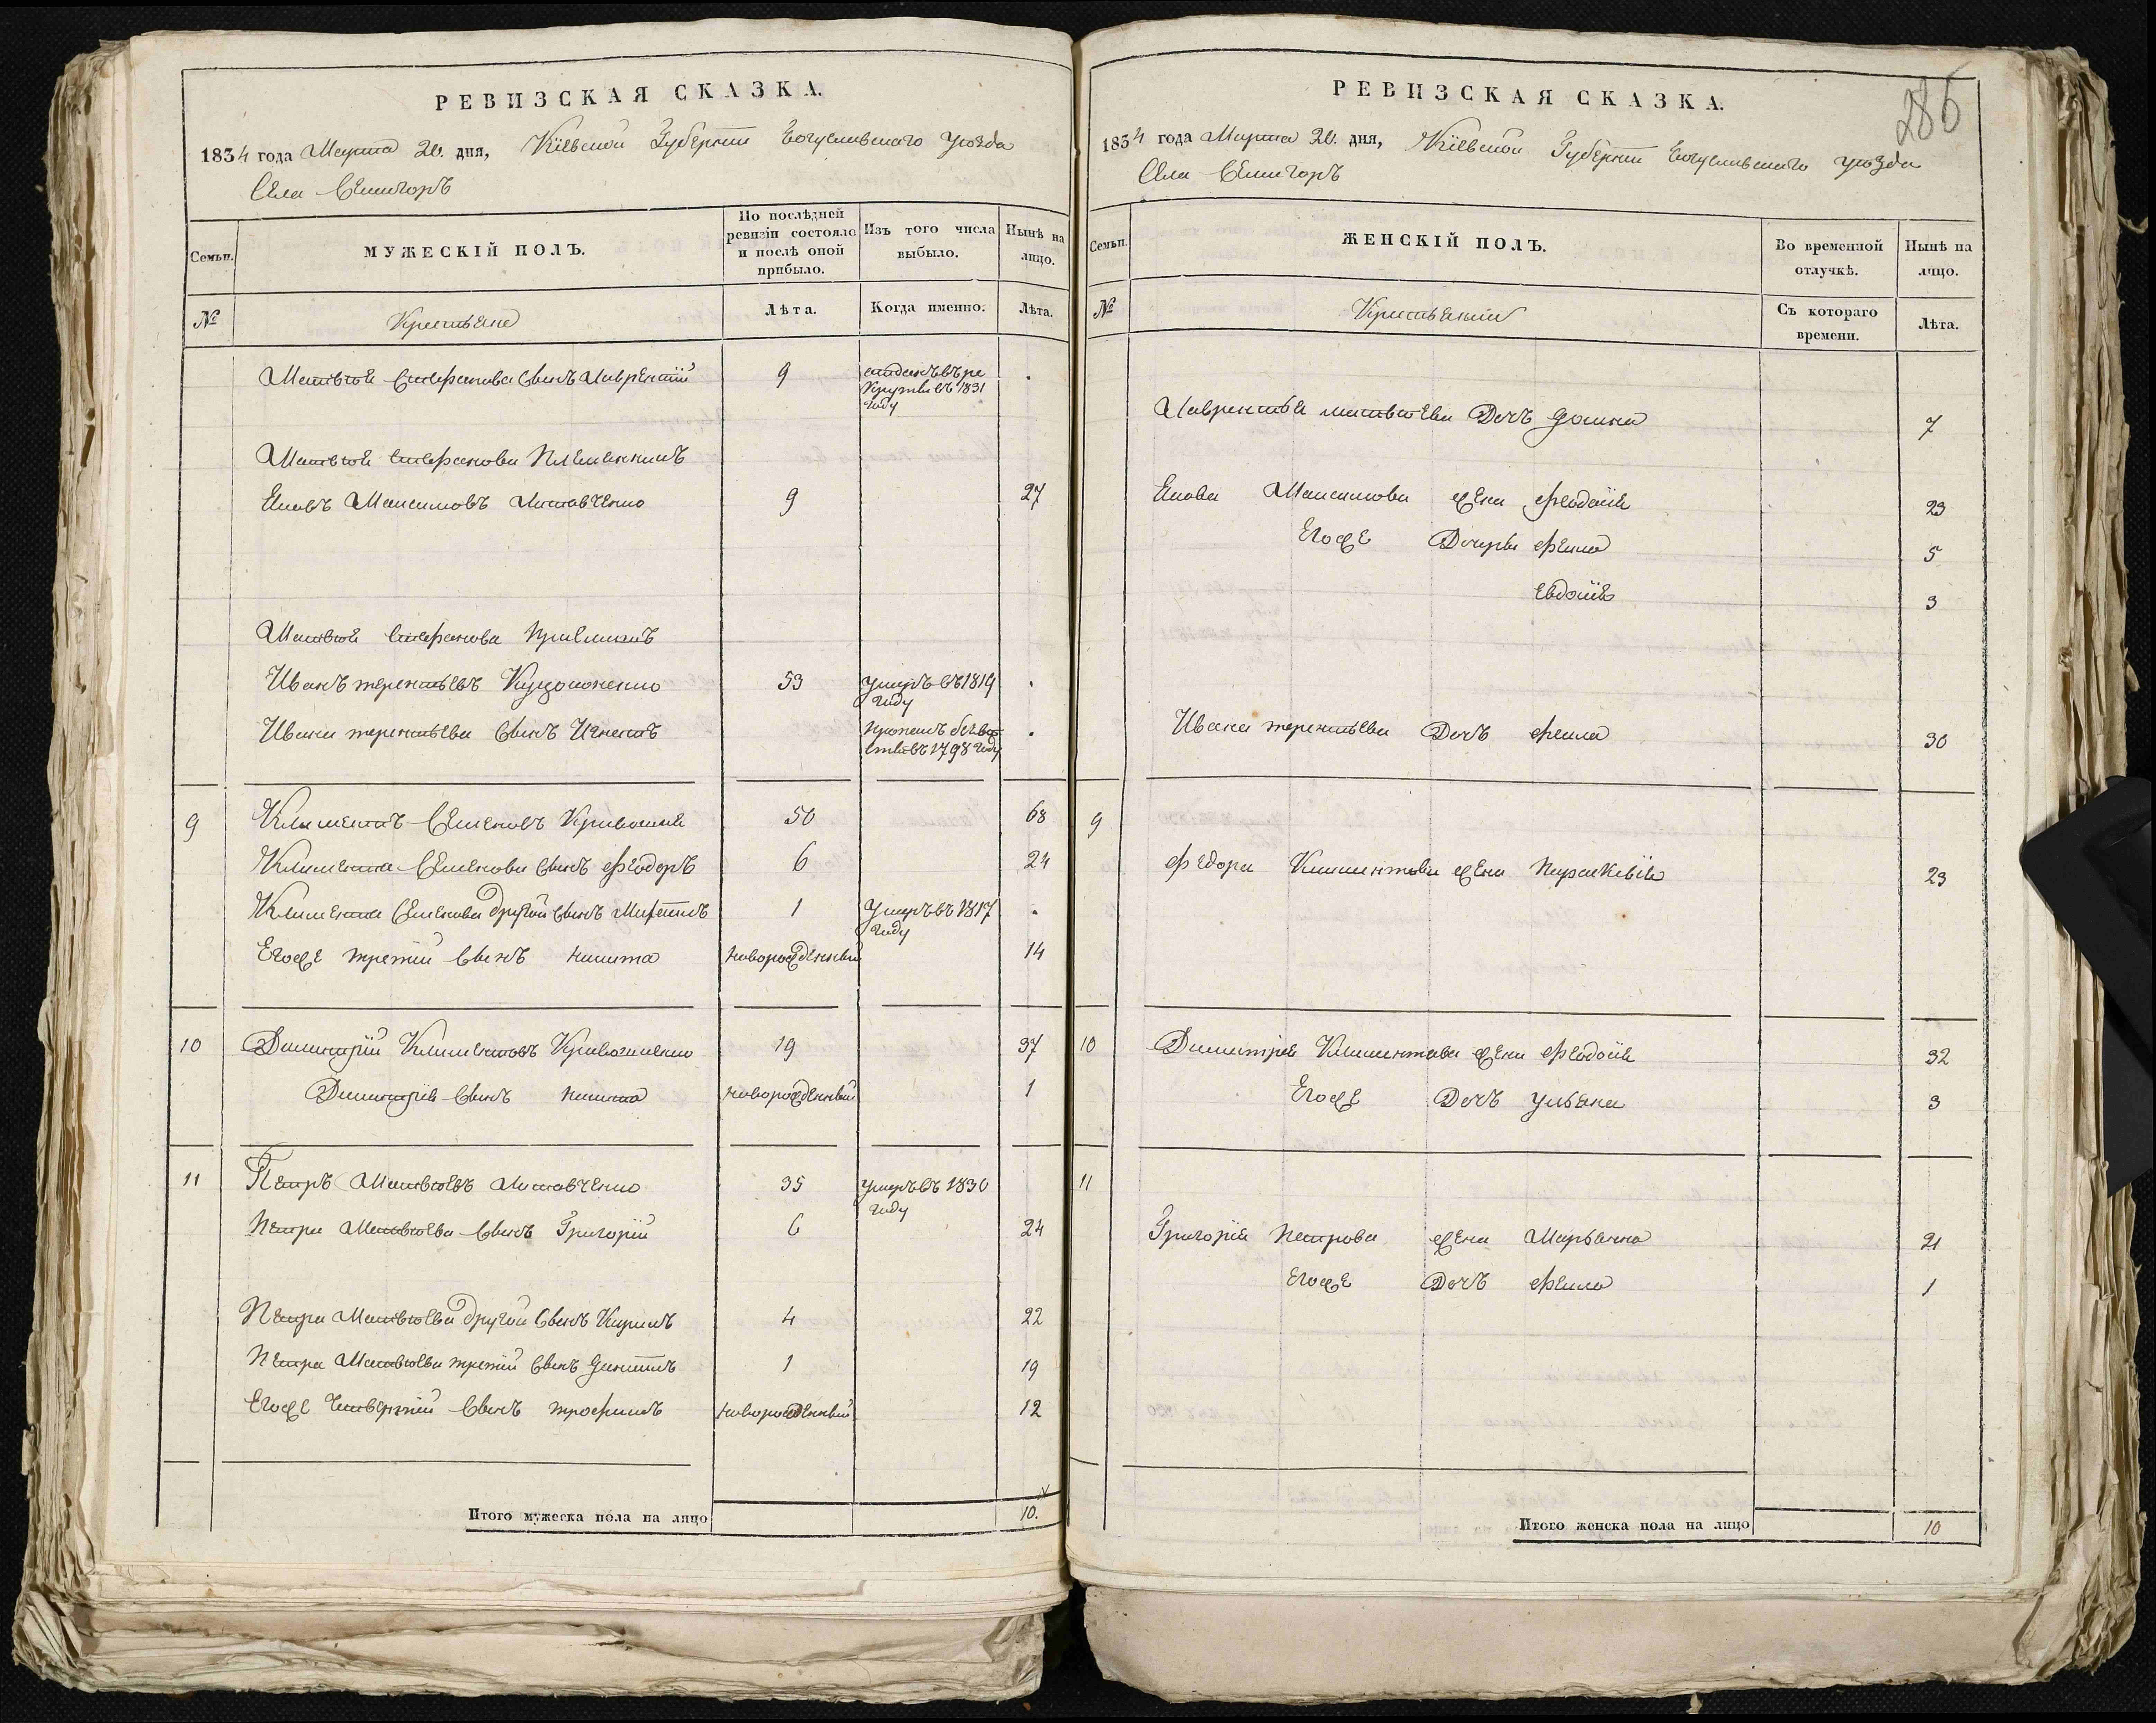 РЕВИЗСКАЯ СКАЗКА.
1834 года Марта 20. дня, Кіевской Губерніи Богуславскаго уѣзда
Села Семигоръ
Семьи.
МУЖЕСКІЙ ПОЛЪ.
По послѣдней ревизіи состояло и послѣ оной прибыло.
Изъ того числа выбыло.
Нынѣ на лицо.
№
Крестьяне
Лѣта.
Когда именно.
Лѣта.
Матвѣя Стефанова сынъ Лаврентій 9 отданъ въ ре
круты въ 1831
году
Матвѣя Стефанова племенникъ
Яковъ Максимовъ Литовченко 9 27
Матвѣя Стефанова приймакъ
Иванъ терентьевъ 53 умеръ въ 1819
году
Ивана терентьева сынъ Игнатъ въ 1798 году
9 Климентъ Семеновъ 50 68
Климента Семенова сынъ Феодоръ 6 24
Климента Семенова другой сынъ 1 Умеръ въ 1817
году
Егоже третій сынъ никита новорожденный 14
10 Димитрій Климентовъ 19 37
Димитрія сынъ никита новорожденный 1
11 Петръ Матвѣевъ Литовченко 35 умеръ въ 1830
году
Петра Матвѣева сынъ Григорій 6 24
Петра Матвѣева другой сынъ Кирилъ 4 22
Петра Матвѣева третій сынъ Данилъ 1 19
Егоже Четвертій сынъ трофимъ новорожденный 12
Итого мужеска пола на лицо 10.
РЕВИЗСКАЯ СКАЗКА.
286
1834 года Марта 20. дня, Кіевской Губерніи Богуславскаго уѣзда
Села Семигоръ
Семьи.
ЖЕНСКІЙ ПОЛЪ.
Во временной отлучкѣ.
Нынѣ на лицо.
№
Крестьянки
Съ котораго времени.
Лѣта.
Лаврентья матвѣева Дочъ Домна 7
Якова Максимова жена Феодосія 23
Егоже Дочери Фекла 5
Евдокія 3
Ивана терентьева Дочъ Фекла 30
9
Федора Климентьева жена Параскевія 23
10 Димитрія Климентова жена Феодосія 32
Егоже Дочъ Ульяна 3
11
Григорія Петрова жена Марьянна 21
Егоже Дочъ Фекла 1
Итого женска пола на лицо 10